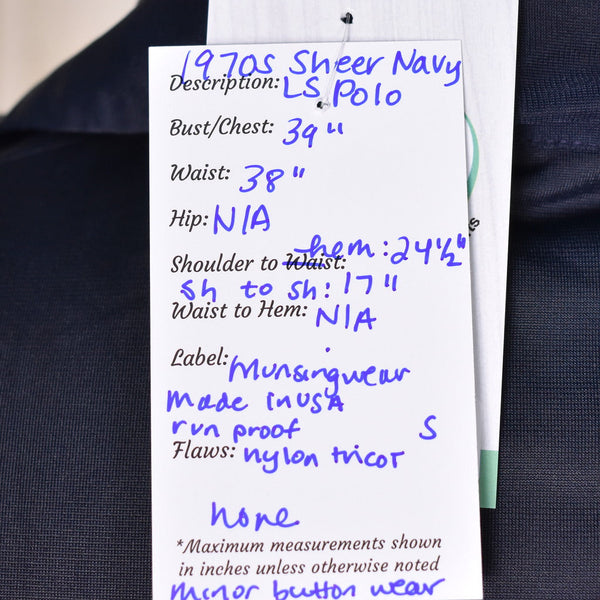 1970s Sheer Navy
Description: LS Polo
Bust/Chest: 39"
Waist: 38"
Hip: N/A
hem: 24½"
Shoulder to Waist:
Sh to sh: 17"
Waist to Hem: N/A
Label: Munsingwear
made in USA
run proof S
Flaws: nylon tricot
none
*Maximum measurements shown
in inches unless otherwise noted
minor button wear